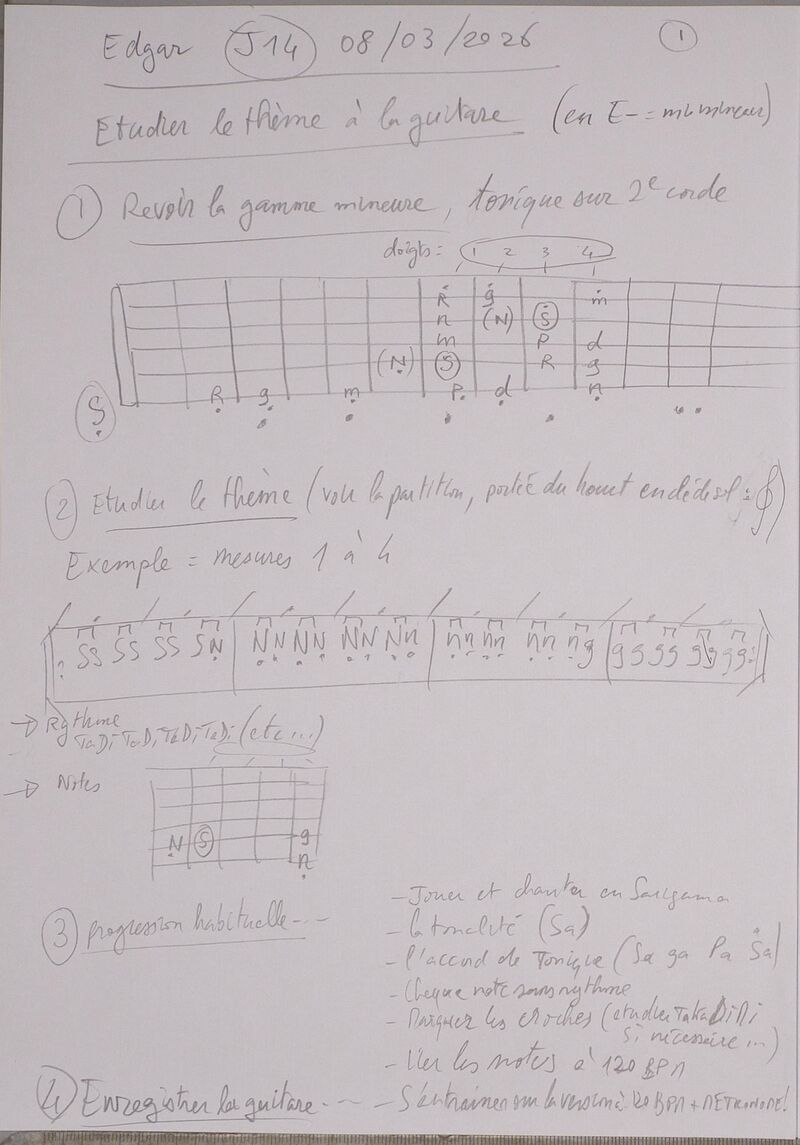 Edgar J14 08/03/2026 1
Etudier le thème à la guitare (en E- = mi mineur)
1 Revoir la gamme mineure, tonique sur 2e corde
doigts = 1 2 3 4
R g m
n (N) S
m P d
(N) S R g
S R g m P d n
2 Etudier le thème (voir la partition, portée du haut en clé de sol :
Exemple = mesures 1 à 4
SS SS SS SN NN NN NN Nn nn nn nn ng gg gg gg gg
→ Rythme
TaDi TaDi TaDi TaDi (etc...)
→ Notes
N S g
n
- Jouer et chanter en Sarigama
3 progression habituelle... - la tonalité (Sa)
- l'accord de Tonique (Sa ga Pa Sa)
- Chaque note sans rythme
- Marquer les croches (étudier TaKaDiMi
si nécessaire...)
- Lier les notes à 120 BPM
4 Enregistrer la guitare... - S'entraîner sur la version à 120 BPM + METRONOME!